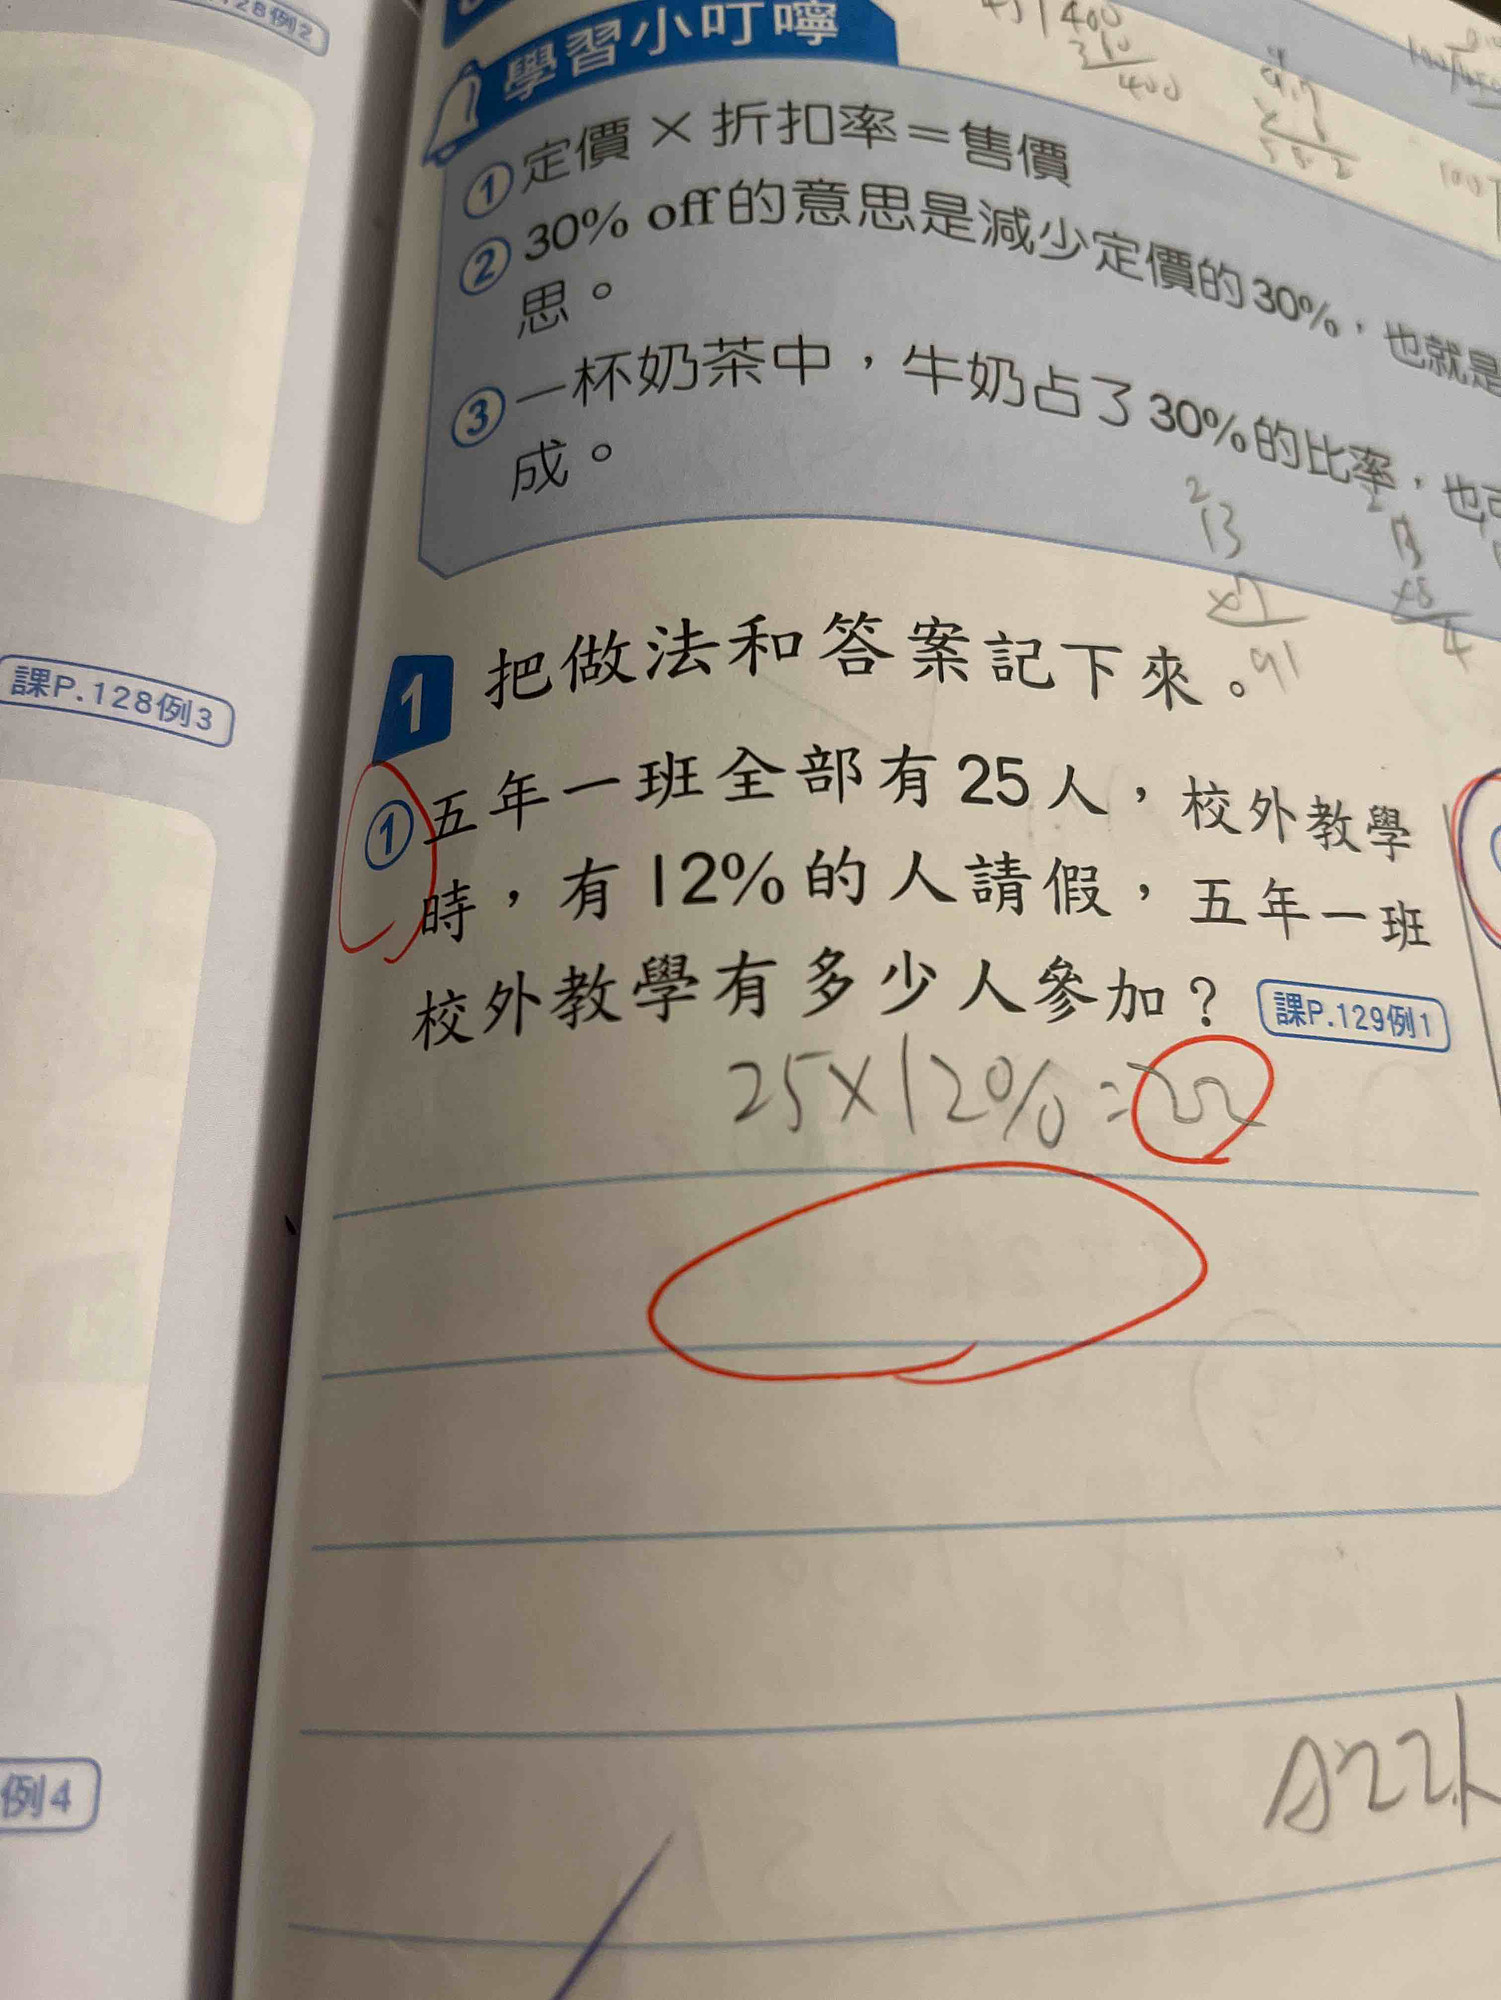 128例2
學習小叮嚀
①定價×折扣率=售價
②30% off的意思是減少定價的30%,也就是
思。
③一杯奶茶中,牛奶占了30%的比率,也可
成。
400
400
2
13
91
課P.128例3
1 把做法和答案記下來。
①五年一班全部有25人,校外教學
時,有12%的人請假,五年一班
校外教學有多少人參加? 課P.129例1
25×12%=22
例4
A:22人